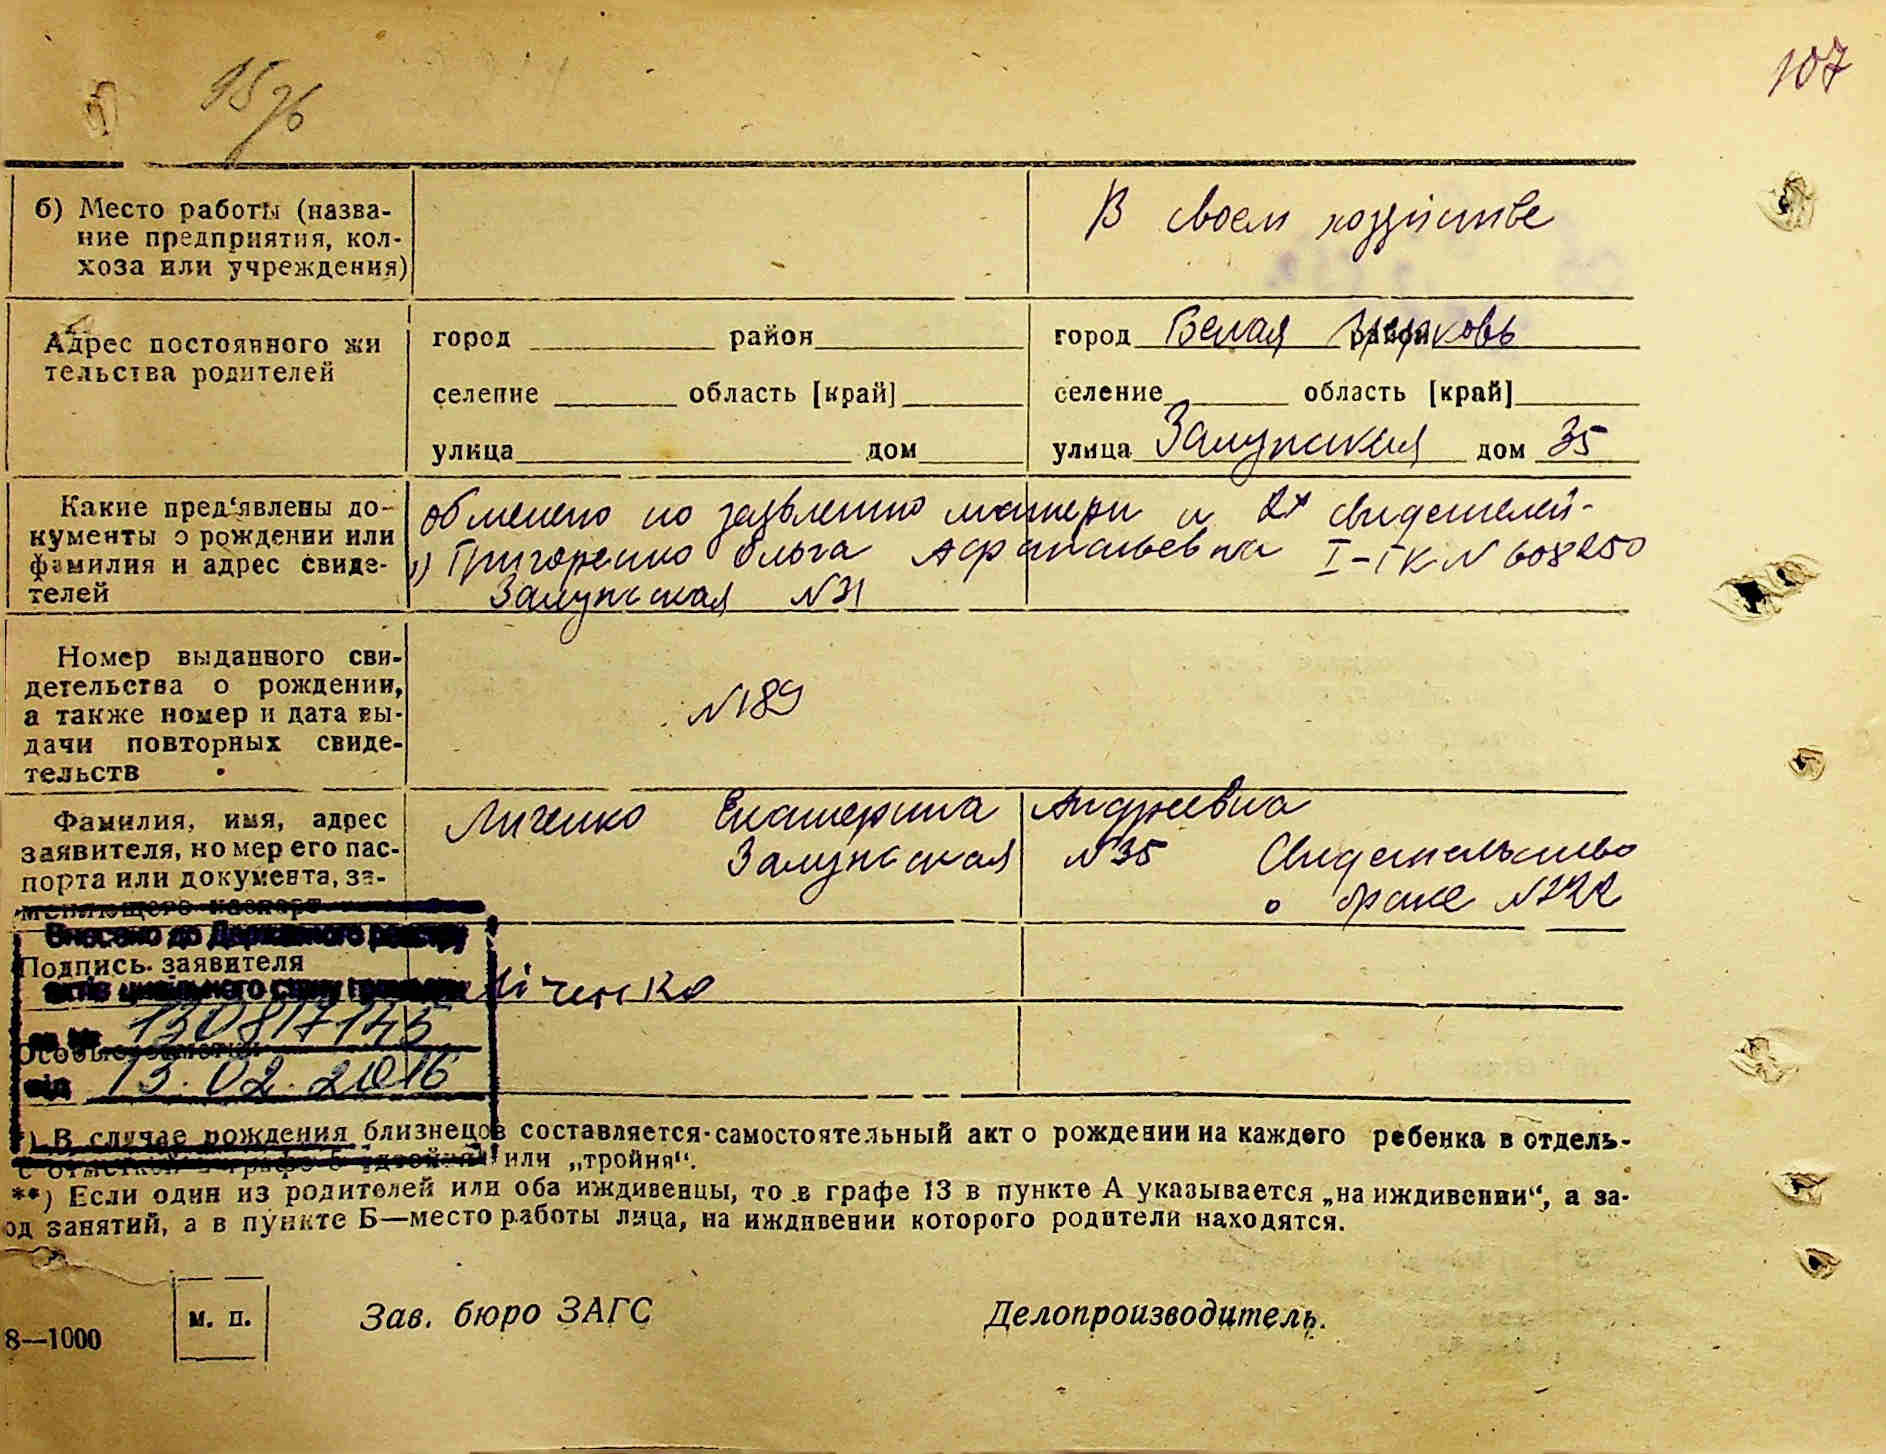 107
95
б) Место работы (назва-
ние предприятия, кол-
хоза или учреждения)
В своем хозяйстве
Адрес постоянного жи
тельства родителей
город район
селение область [край]
улица дом
город Белая Церковь район
селение область [край]
улица Залузьская дом 35
Какие пред‘явлены до-
кументы о рождении или
фамилия и адрес свиде-
телей
по заявлению матери и 2х свидетелей-
1) Григоренко Ольга Афанасьевна I-ГК N 608250
Залузьская N 31
Номер выданного сви-
детельства о рождении,
а также номер и дата вы-
дачи повторных свиде-
тельств
N 189
Фамилия, имя, адрес
заявителя, номер его пас-
порта или документа, за-
меняющего паспорт
Личенко Екатерина Андреевна
Залузьская N 35 Свидетельство
о браке N 222
Внесено до Державного реєстру
Подпись заявителя
актів цивільного стану громадян
Ліченко
за № 130817145
Особые заметки
від 13.02.2016
*) В случае рождения близнецов составляется самостоятельный акт о рождении на каждого ребенка в отдель-
с отметкой в графе 5 „двойня“ или „тройня“.
**) Если один из родителей или оба иждивенцы, то в графе 13 в пункте А указывается „на иждивении“, а за-
од занятий, а в пункте Б—место работы лица, на иждивении которого родители находятся.
м. п.
Зав. бюро ЗАГС
Делопроизводитель.
8—1000